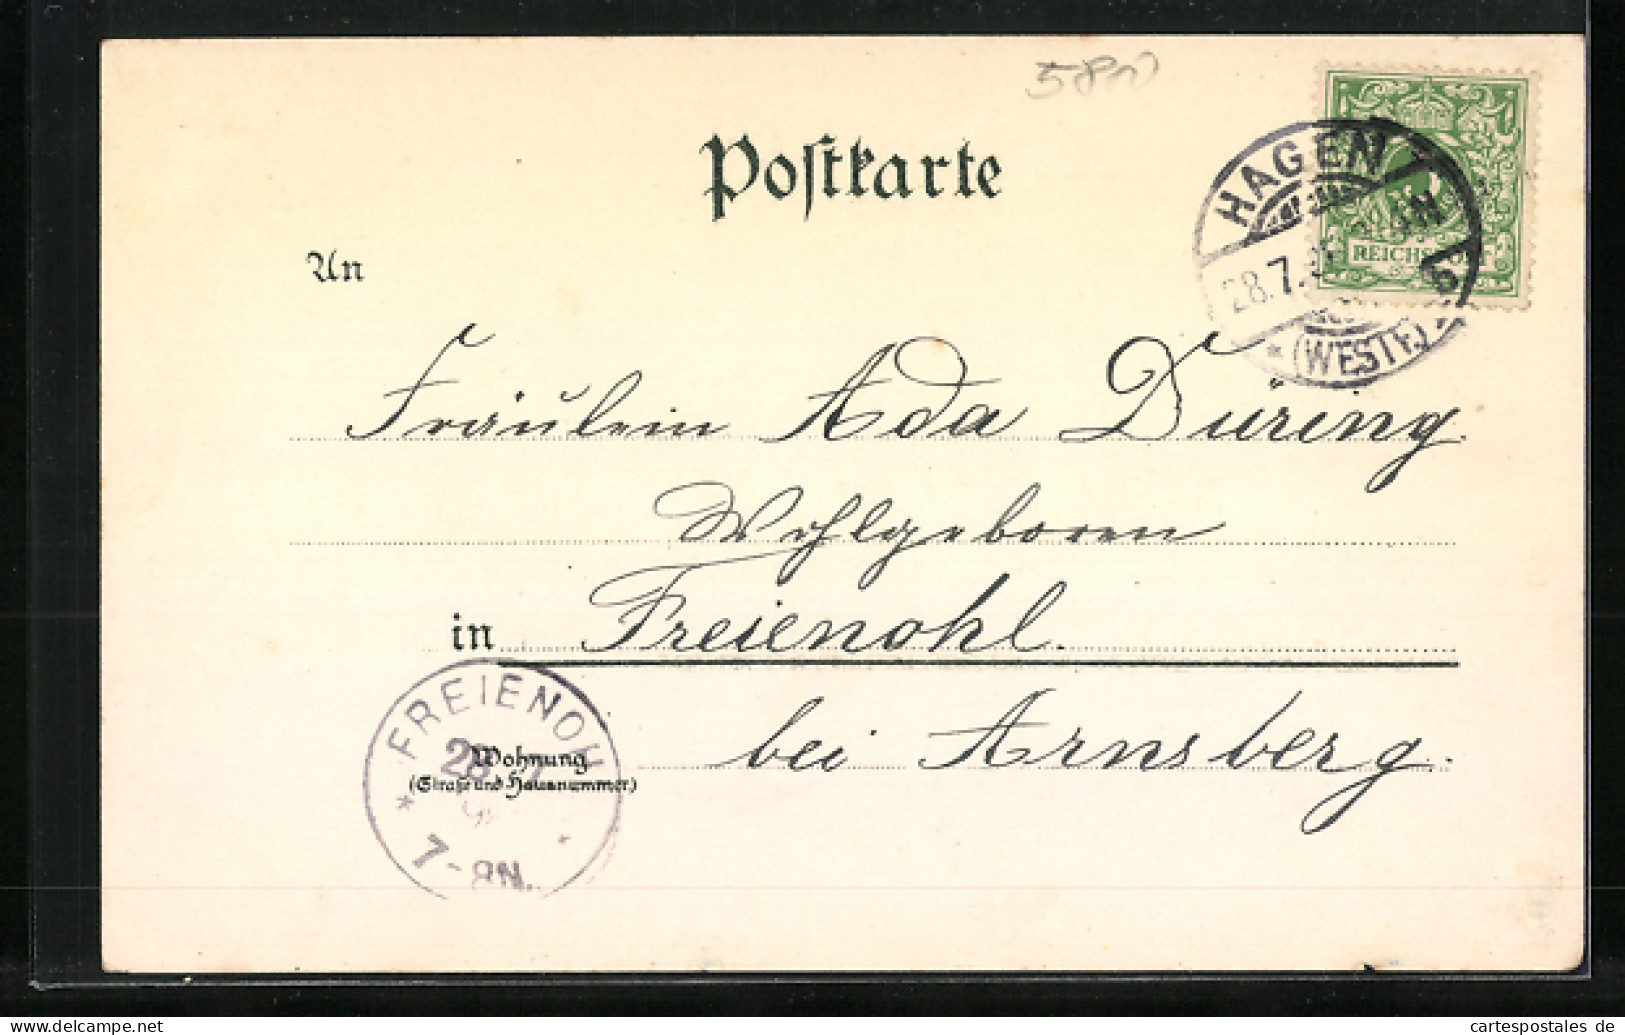 5800
Postkarte
HAGEN
28.7.
REICHSPOST
(WESTF.)
An
Fräulein Ada Düring
Wohlgeboren
in Freienohl.
bei Arnsberg.
FREIENOHL
28
7-8N.
Wohnung
(Straße und Hausnummer)
cartespostales de